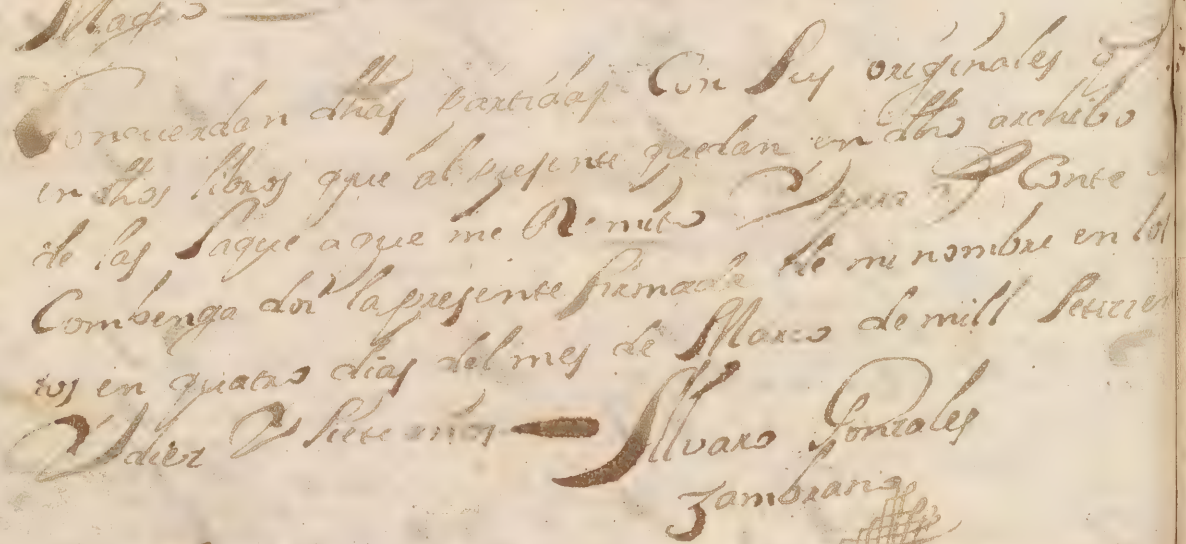 Concuerdan dhas partidas Con sus originales q
en dhos libros que al presente quedan en dho archibo
de las saque a que me Remito Y para q Conste
Combenga doi la presente firmada de mi nombre en los
tos en quatro dias del mes de Março de mill Setecien
Y diez Y siete años
Alvaro Gonzales
Zambrano